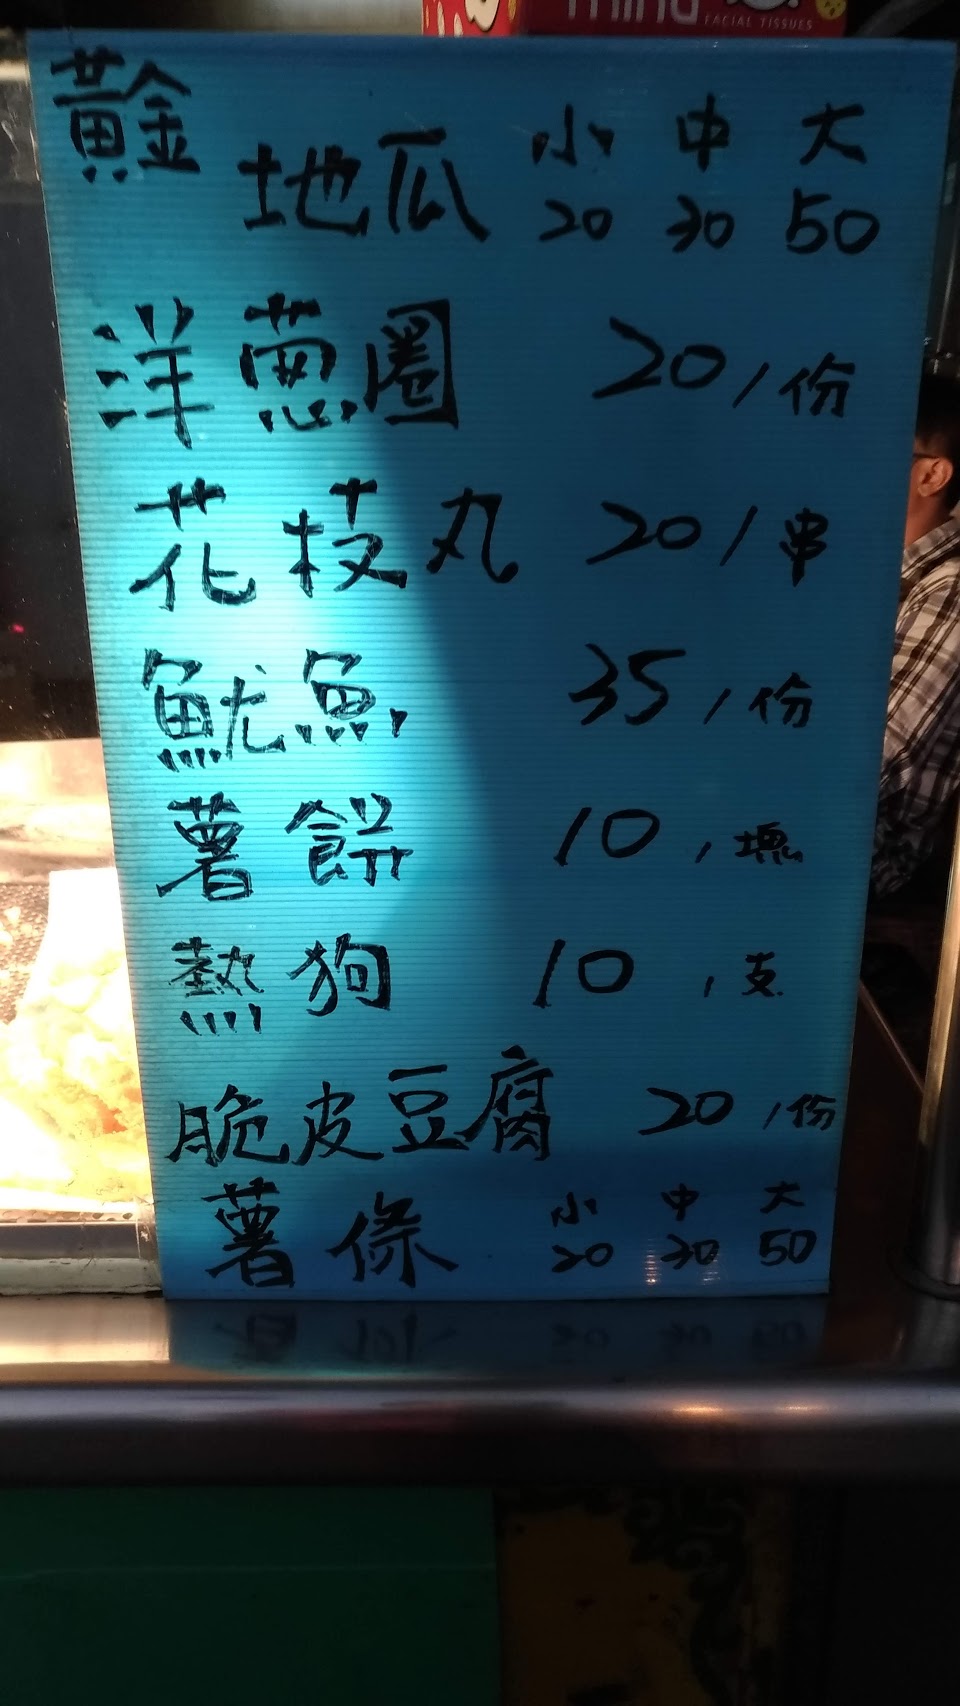 mind FACIAL TISSUES
黃金
地瓜 小 中 大
20 30 50
洋蔥圈 20/份
花枝丸 20/串
魷魚 35/份
薯餅 10/塊
熱狗 10/支
脆皮豆腐 20/份
薯條 小 中 大
20 30 50